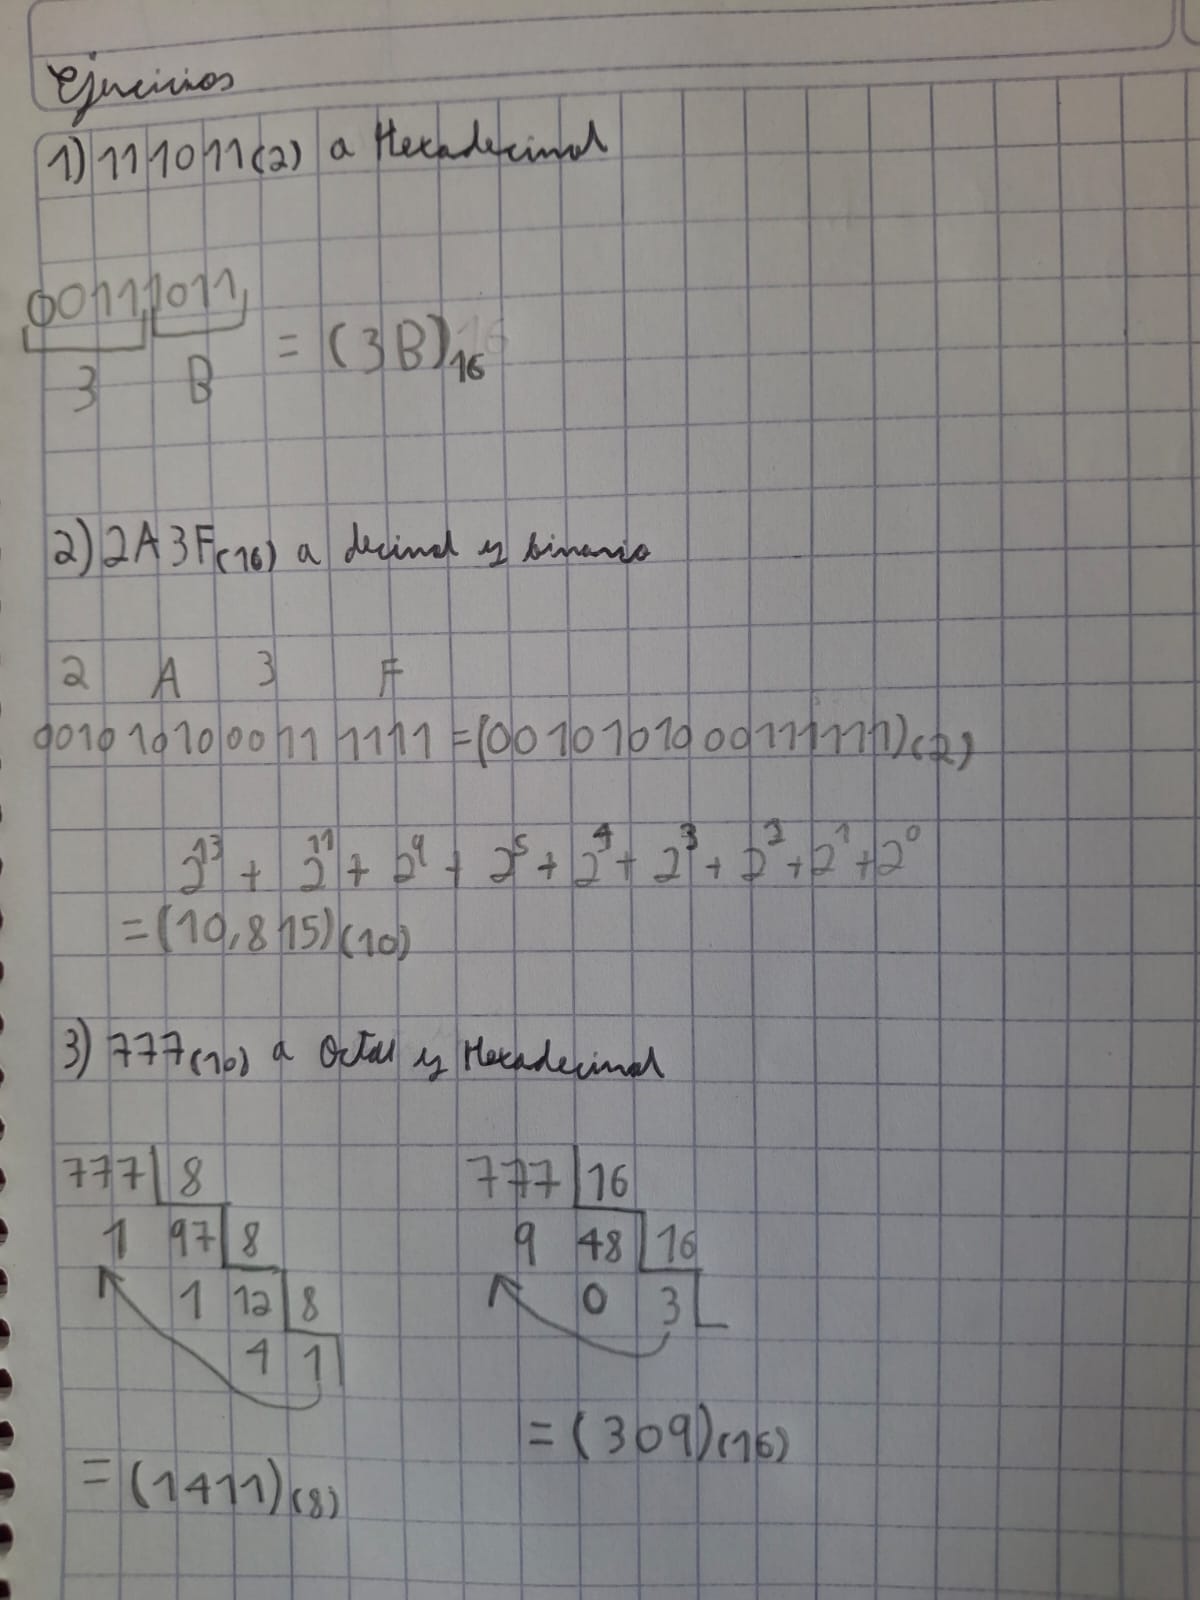 Ejercicios
1) 111011(2) a Hexadecimal
00111011
3 B = (3B)16
2) 2A3F(16) a decimal y binario
2 A 3 F
0010 1010 0011 1111 = (0010101000111111)(2)
2^13 + 2^11 + 2^9 + 2^5 + 2^4 + 2^3 + 2^2 + 2^1 + 2^0
= (10,815)(10)
3) 777(10) a Octal y Hexadecimal
777 8
1 97 8
1 12 8
4 1
= (1411)(8)
777 16
9 48 16
0 3
= (309)(16)